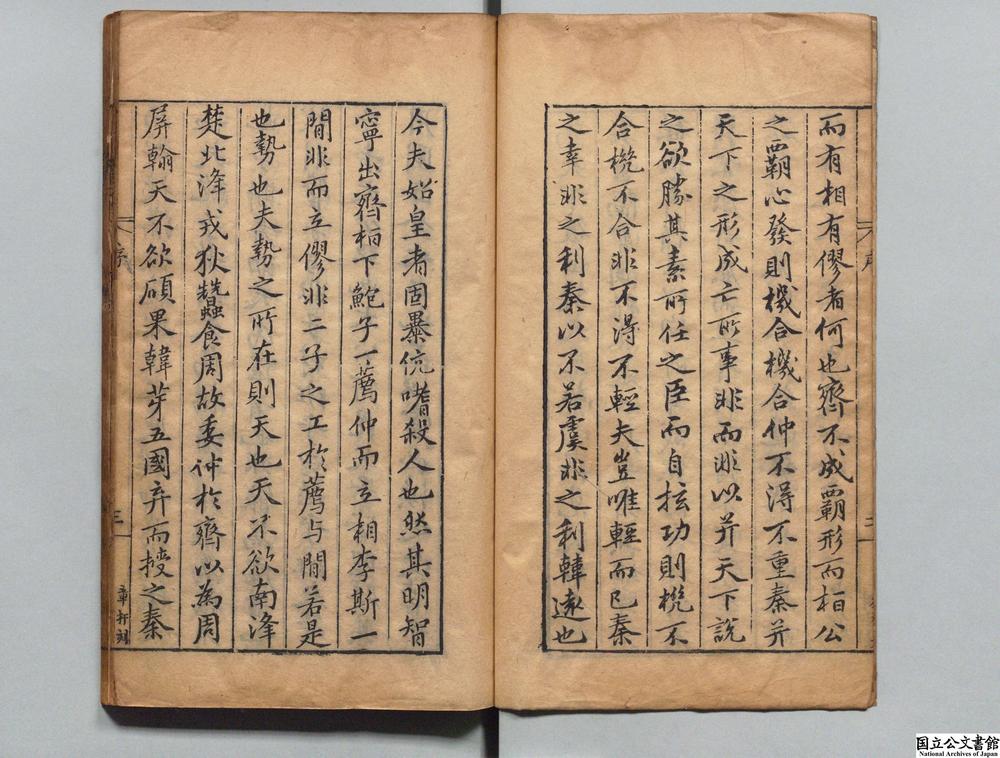 而有相有僇者何也齊不成霸形而柏公
之霸心發則機合機合仲不得不重秦并
天下之形成亡所事非而非以并天下說
之欲勝其素所任之臣而自扙功則機不
合機不合非不得不輕夫豈唯輕而已秦
之幸非之利秦以不若虞非之利韓遠也
序
今夫始皇者固暴伉嗜殺人也然其明智
寧出齊柏下鮑子一薦仲而立相李斯一
間非而立僇非二子之工於薦与間若是
也勢也夫勢之所在則天也天不欲南洚
楚北洚戎狄蠶食周故委仲於齊以為周
屏翰天不欲碩果韓芽五國弃而授之秦
序
三
章扞刻
国立公文書館
National Archives of Japan